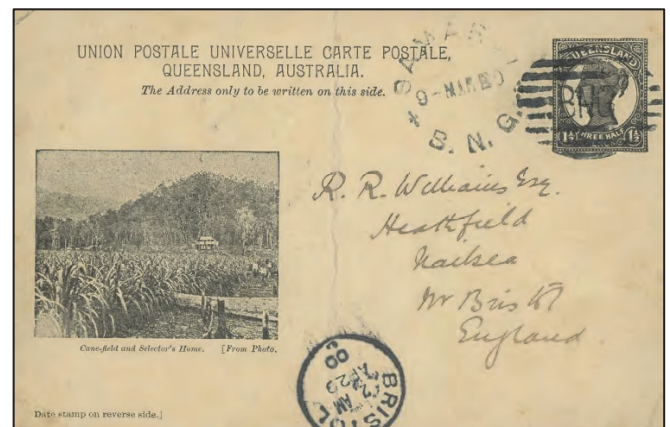 UNION POSTALE UNIVERSELLE CARTE POSTALE,
QUEENSLAND, AUSTRALIA.
The Address only to be written on this side.
SAMARAI
B. N. G.
QUEENSLAND
BNG
1½ THREE HALF 1½
R. R. Williams Esq.
Heathfield
Nailsea
Nr Bristol
England
Cane-field and Selector's Home. [From Photo.
BRISTOL
AM
AP 29
00
Date stamp on reverse side.]